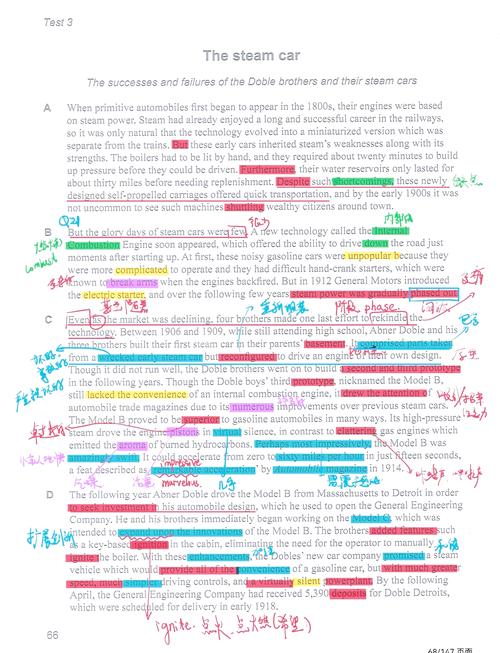 Test 3
The steam car
The successes and failures of the Doble brothers and their steam cars
A When primitive automobiles first began to appear in the 1800s, their engines were based
on steam power. Steam had already enjoyed a long and successful career in the railways,
so it was only natural that the technology evolved into a miniaturized version which was
separate from the trains. But these early cars inherited steam's weaknesses along with its
strengths. The boilers had to be lit by hand, and they required about twenty minutes to build
up pressure before they could be driven. Furthermore, their water reservoirs only lasted for
about thirty miles before needing replenishment. Despite such shortcomings, these newly
designed self-propelled carriages offered quick transportation, and by the early 1900s it was
not uncommon to see such machines shuttling wealthy citizens around town.
Q21
B But the glory days of steam cars were few. A new technology called the Internal
Combustion Engine soon appeared, which offered the ability to drive down the road just
moments after starting up. At first, these noisy gasoline cars were unpopular because they
were more complicated to operate and they had difficult hand-crank starters, which were
known to break arms when the engines backfired. But in 1912 General Motors introduced
the electric starter, and over the following few years steam power was gradually phased out.
阶段 phase.
C Even as the market was declining, four brothers made one last effort to rekindle the
technology. Between 1906 and 1909, while still attending high school, Abner Doble and his
three brothers built their first steam car in their parents' basement. It comprised parts taken
from a wrecked early steam car but reconfigured to drive an engine of their own design.
Though it did not run well, the Doble brothers went on to build a second and third prototype
in the following years. Though the Doble boys' third prototype, nicknamed the Model B,
still lacked the convenience of an internal combustion engine, it drew the attention of
automobile trade magazines due to its numerous improvements over previous steam cars.
The Model B proved to be superior to gasoline automobiles in many ways. Its high-pressure
steam drove the engine pistons in virtual silence, in contrast to clattering gas engines which
emitted the aroma of burned hydrocarbons. Perhaps most impressively, the Model B was
amazingly swift. It could accelerate from zero to sixty miles per hour in just fifteen seconds,
a feat described as 'remarkable acceleration' by Automobile magazine in 1914.
marvelous.
几乎
D The following year Abner Doble drove the Model B from Massachusetts to Detroit in order
to seek investment in his automobile design, which he used to open the General Engineering
Company. He and his brothers immediately began working on the Model C, which was
intended to expand upon the innovations of the Model B. The brothers added features such
as a key-based ignition in the cabin, eliminating the need for the operator to manually
ignite the boiler. With these enhancements, the Dobles' new car company promised a steam
vehicle which would provide all of the convenience of a gasoline car, but with much greater
speed, much simpler driving controls, and a virtually silent powerplant. By the following
April, the General Engineering Company had received 5,390 deposits for Doble Detroits,
which were scheduled for delivery in early 1918.
ignite. 点火. 点燃(希望)
66
68/147 页面